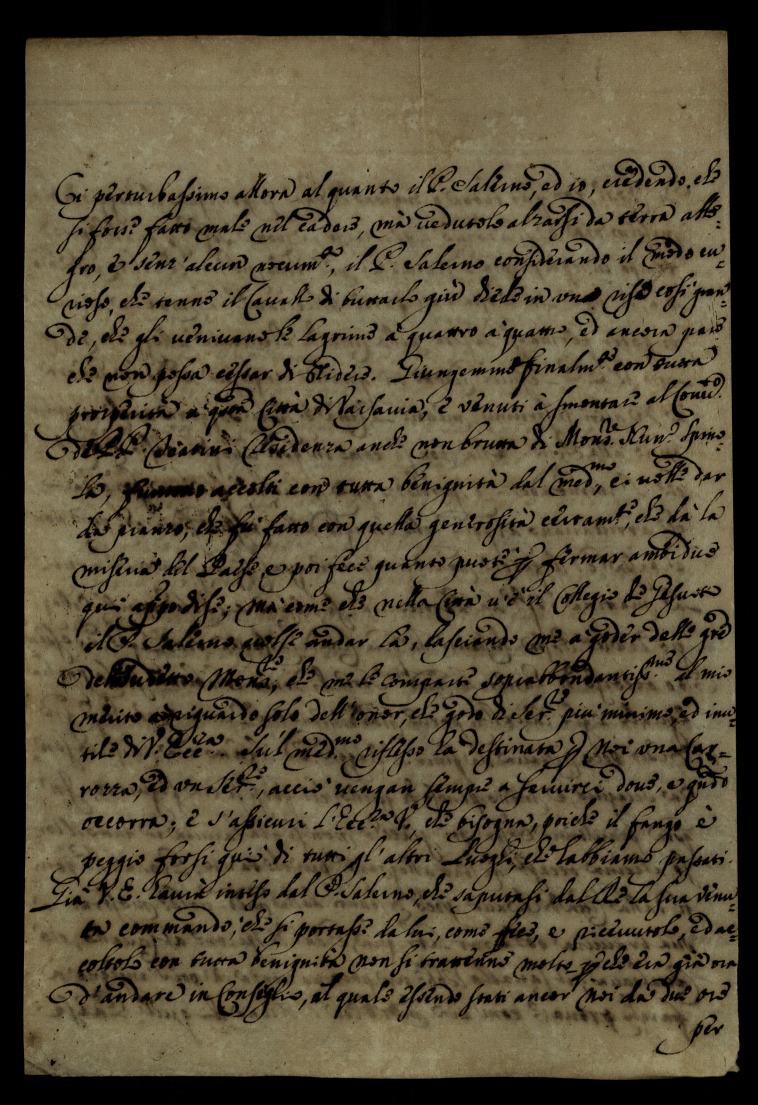 Ci perturbassimo allora al quanto il P. Salerno, ed io, credendo, che
si fosse fatto male nel cadere, mà vedutolo alzarsi da terra alle=
gro, e senz'alcun nocum.to, il P. Salerno considerando il modo cu=
rioso, che tenne il Cavallo di buttarlo giù diede in una risa così gran=
de, che gli venivano le lagrime a quattro a quattro, ed ancora pare
che non possa cessar di ridere. Giungemmo finalm.te con tutta
prosperità a questa Città di Varsavia, e venuti à smontare al Conv.to
de PP. Teatini Residenza anche non brutta di Mons.re Nun.o Spino=
la, accolti con tutta benignità dal med.mo, ci volle dar
da pranzo, che fu fatto con quella generosità certam.te, che dà la
miseria del Paese e poi fece quanto puote p fermar ambidue
qui appo di se; mà come che nella Città v'è il Collegio de Gesuiti
il P. Salerno volse andar là, lasciando me a goder delle gr.e
del sudetto Mons.re, che me le comparte soprabbondantiss.me al mio
merito a riguardo solo dell'onor, che godo di Ser.re più minimo, ed inu=
tile di V. Ecc.za. Sul med.mo riflesso ha destinata p noi una Car=
rozza, ed un Ser.re, acciò vengan sempre a servirci dove, e q.ndo
occorra; e s'assicuri l'Ecc.za V., che bisogna, poiche il fango è
peggio forsi quì di tutti gl'altri Luoghi, che habbiamo passati.
Già V. E. havrà inteso dal P. Salerno, che saputasi dal Rè la sua venu=
ta commandò, che si portasse da lui, come fece, e ricevutolo, ed ac=
coltolo con tutta benignità non si trattenne molto p che era già ora
d'andare in Consiglio, al quale essendo stati ancor noi da due ore
per